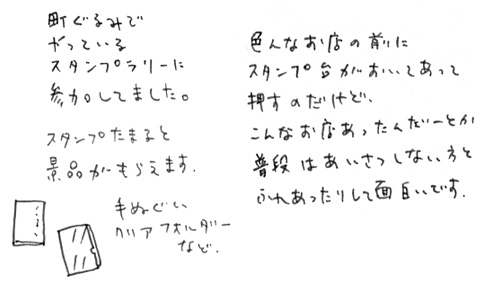 町ぐるみで
やっている
スタンプラリーに
参加してました。
スタンプたまると
景品がもらえます.
手ぬぐい
クリアフォルダー
など.
色んなお店の前に
スタンプ台がおいてあって
押すのだけど、
こんなお店あったんだーとか
普段はあいさつしない方と
ふれあったりして面白いです.